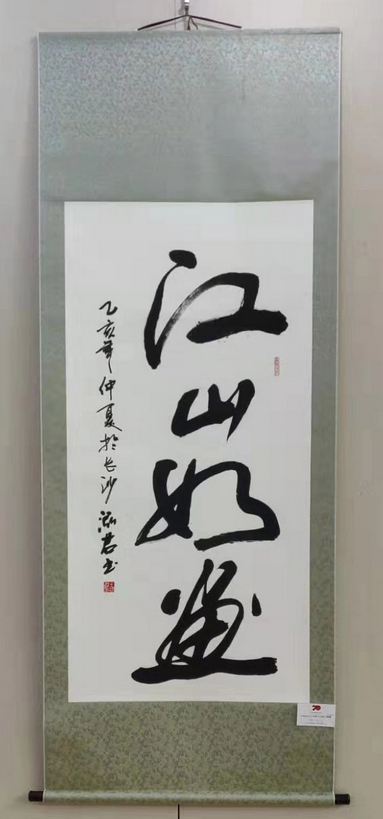 江山如画
乙亥年仲夏於长沙泓君书
70